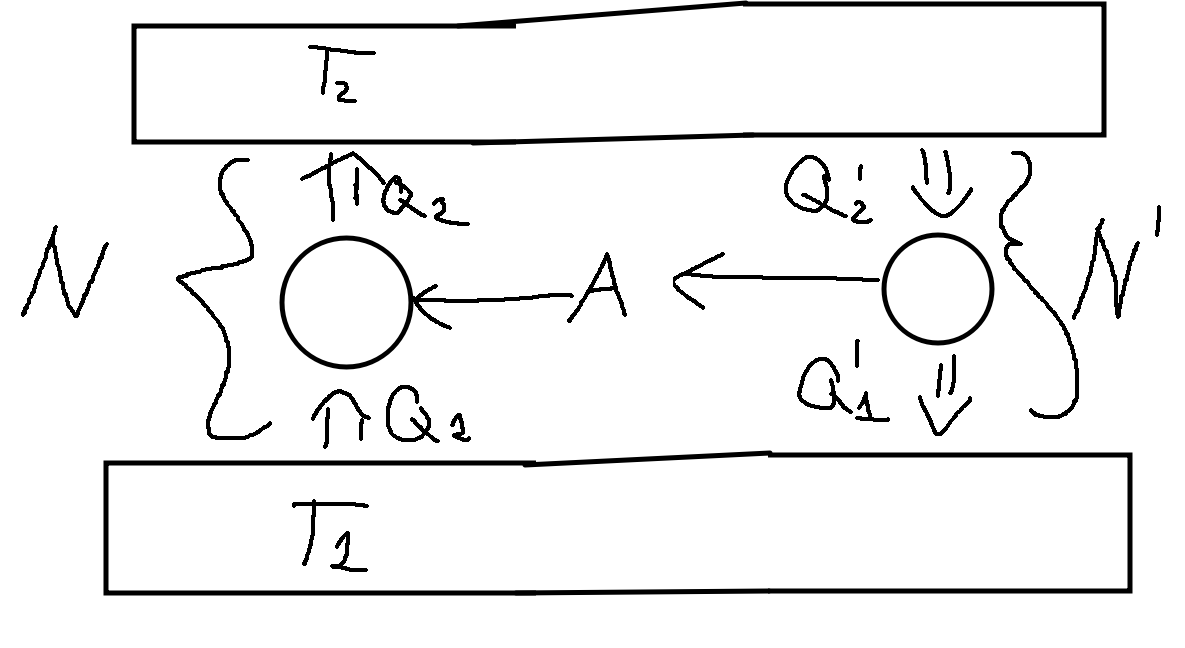 T₂
Q₂ Q₂'
N A N'
Q₁ Q₁'
T₁